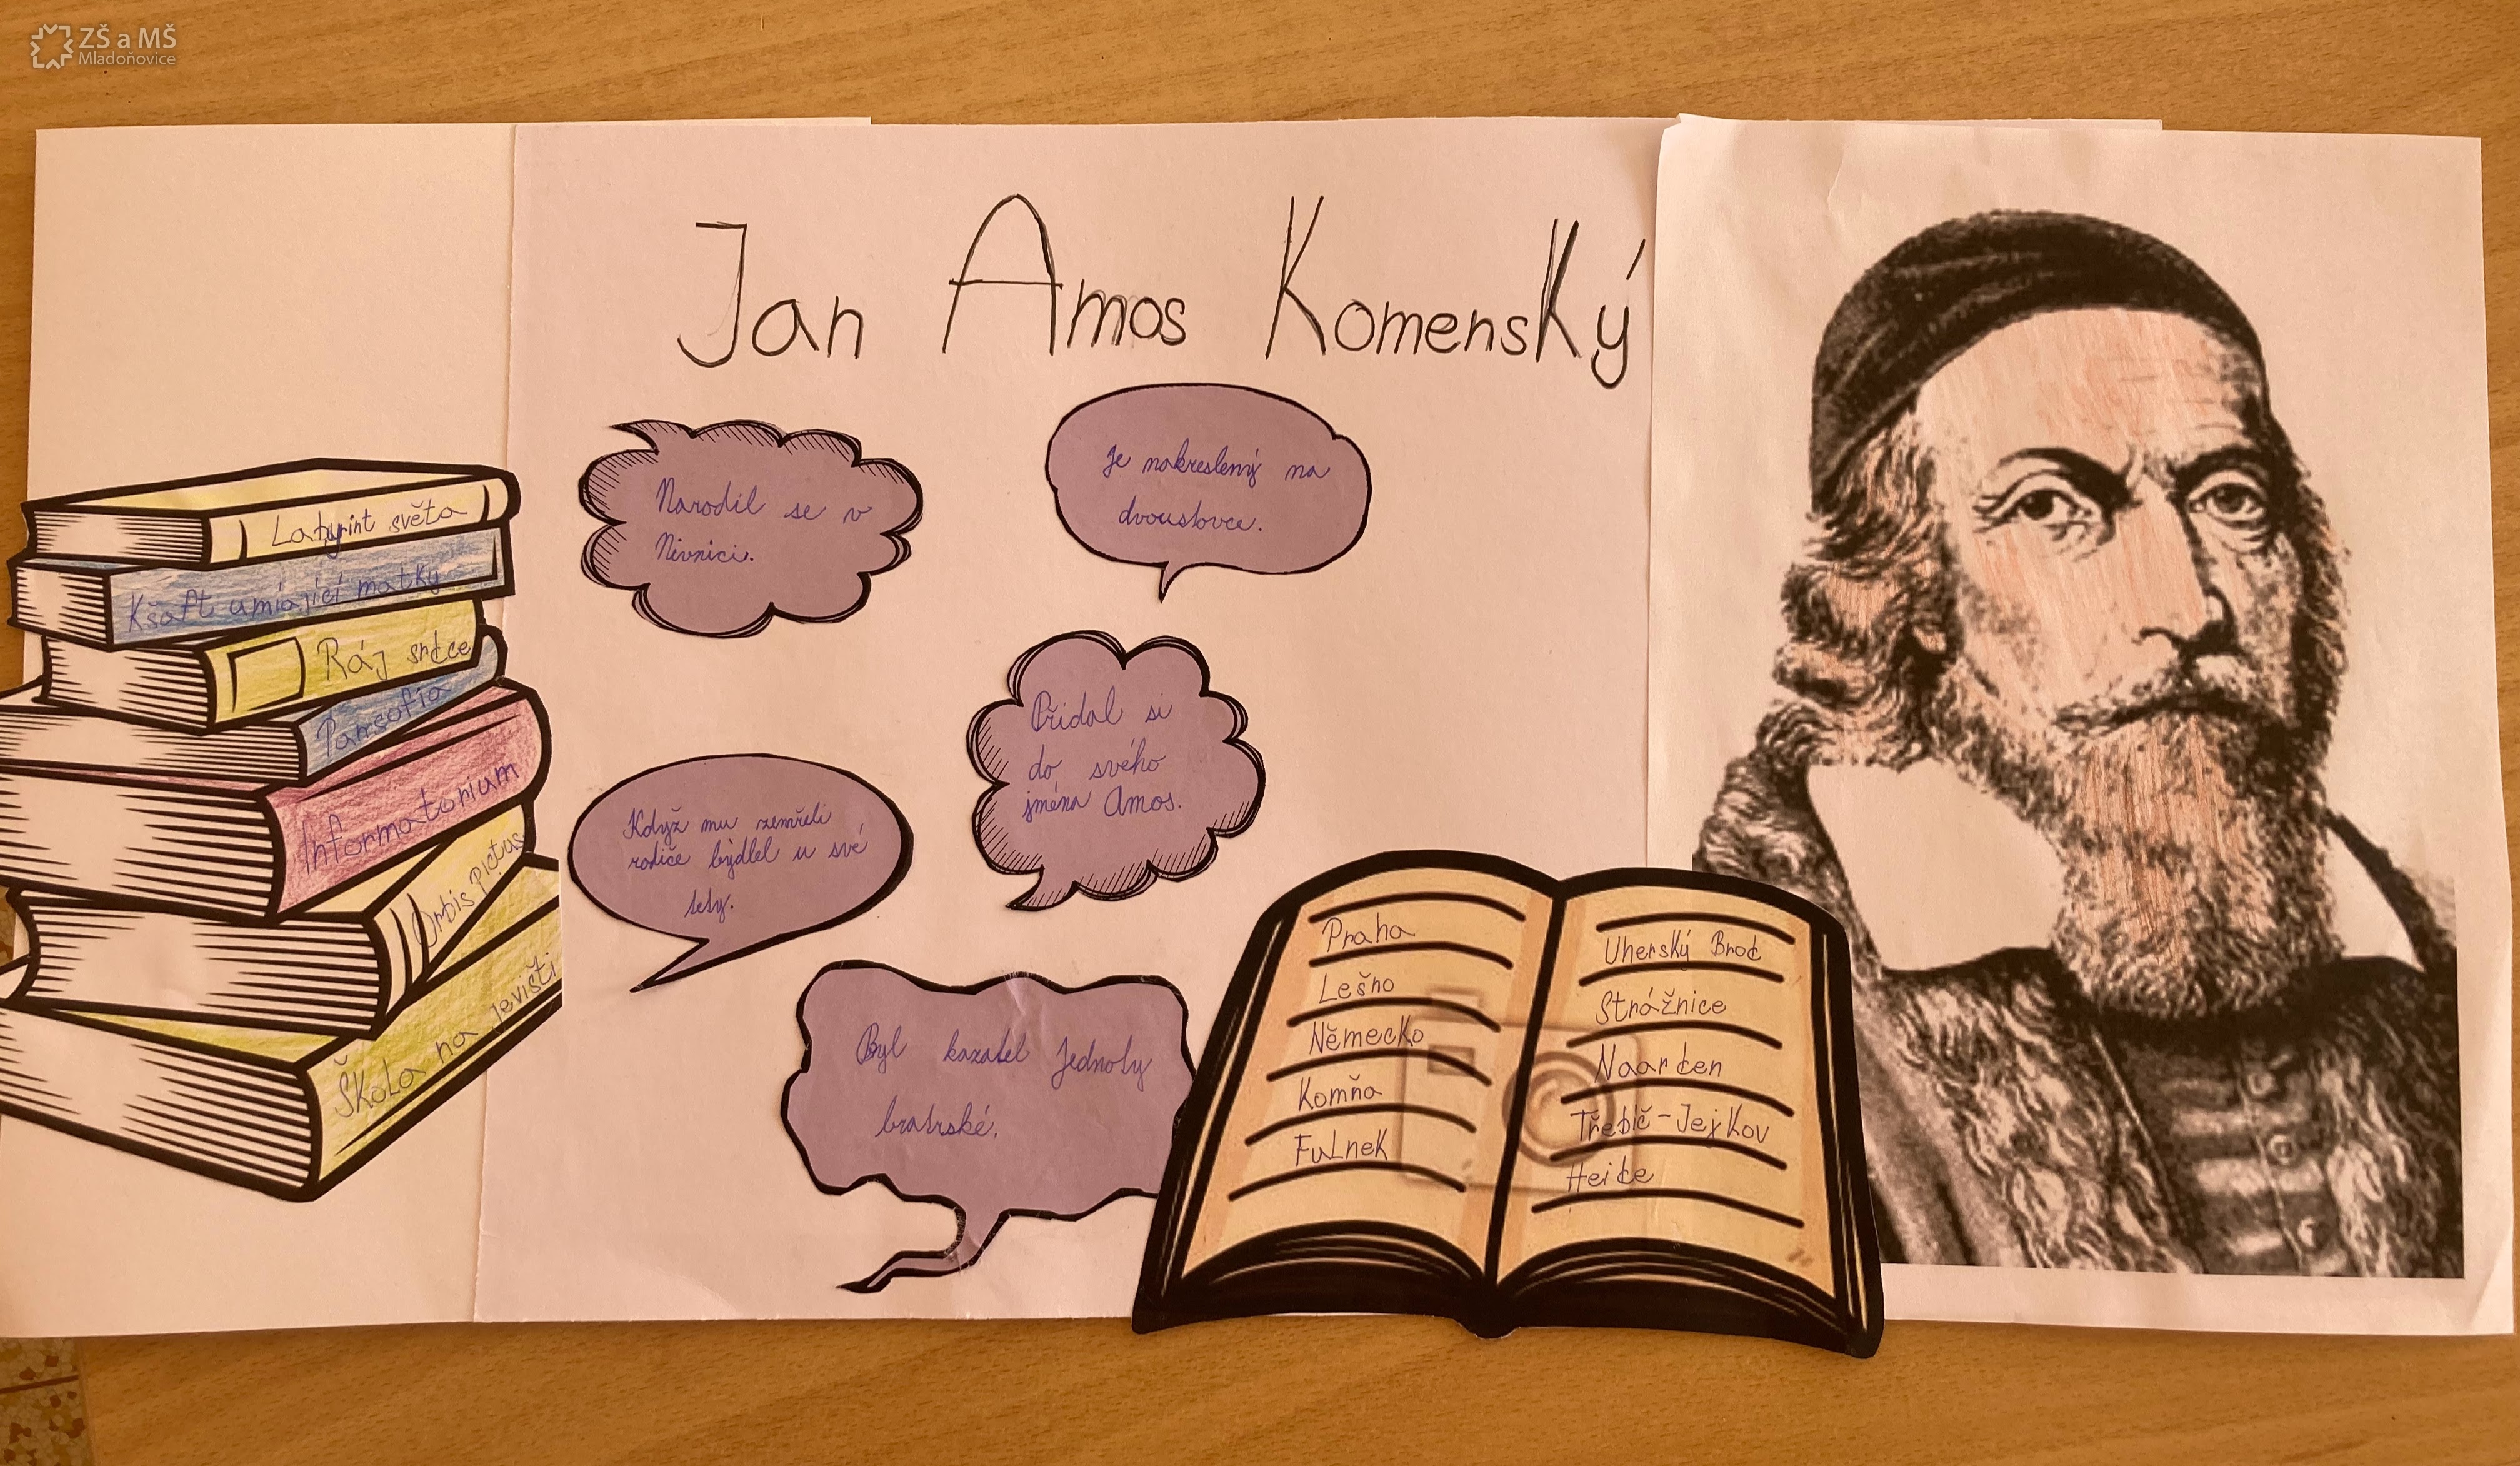 ZŠ a MŠ
Mladoňovice
Jan Amos Komenský
Labyrint světa
Kšaft umíající matky
Ráj srdce
Pansofia
Informatorium
Orbis pictus
Škola na jevišti
Narodil se v
Nivnici.
Je nakreslený na
dvoustovce.
Přidal si
do svého
jména Amos.
Když mu zemřeli
rodiče bydlel u své
tety.
Byl kazatel Jednoty
bratrské.
Praha
Lešno
Německo
Komňa
Fulnek
Uherský Brod
Strážnice
Naarden
Třebíč-Jejkov